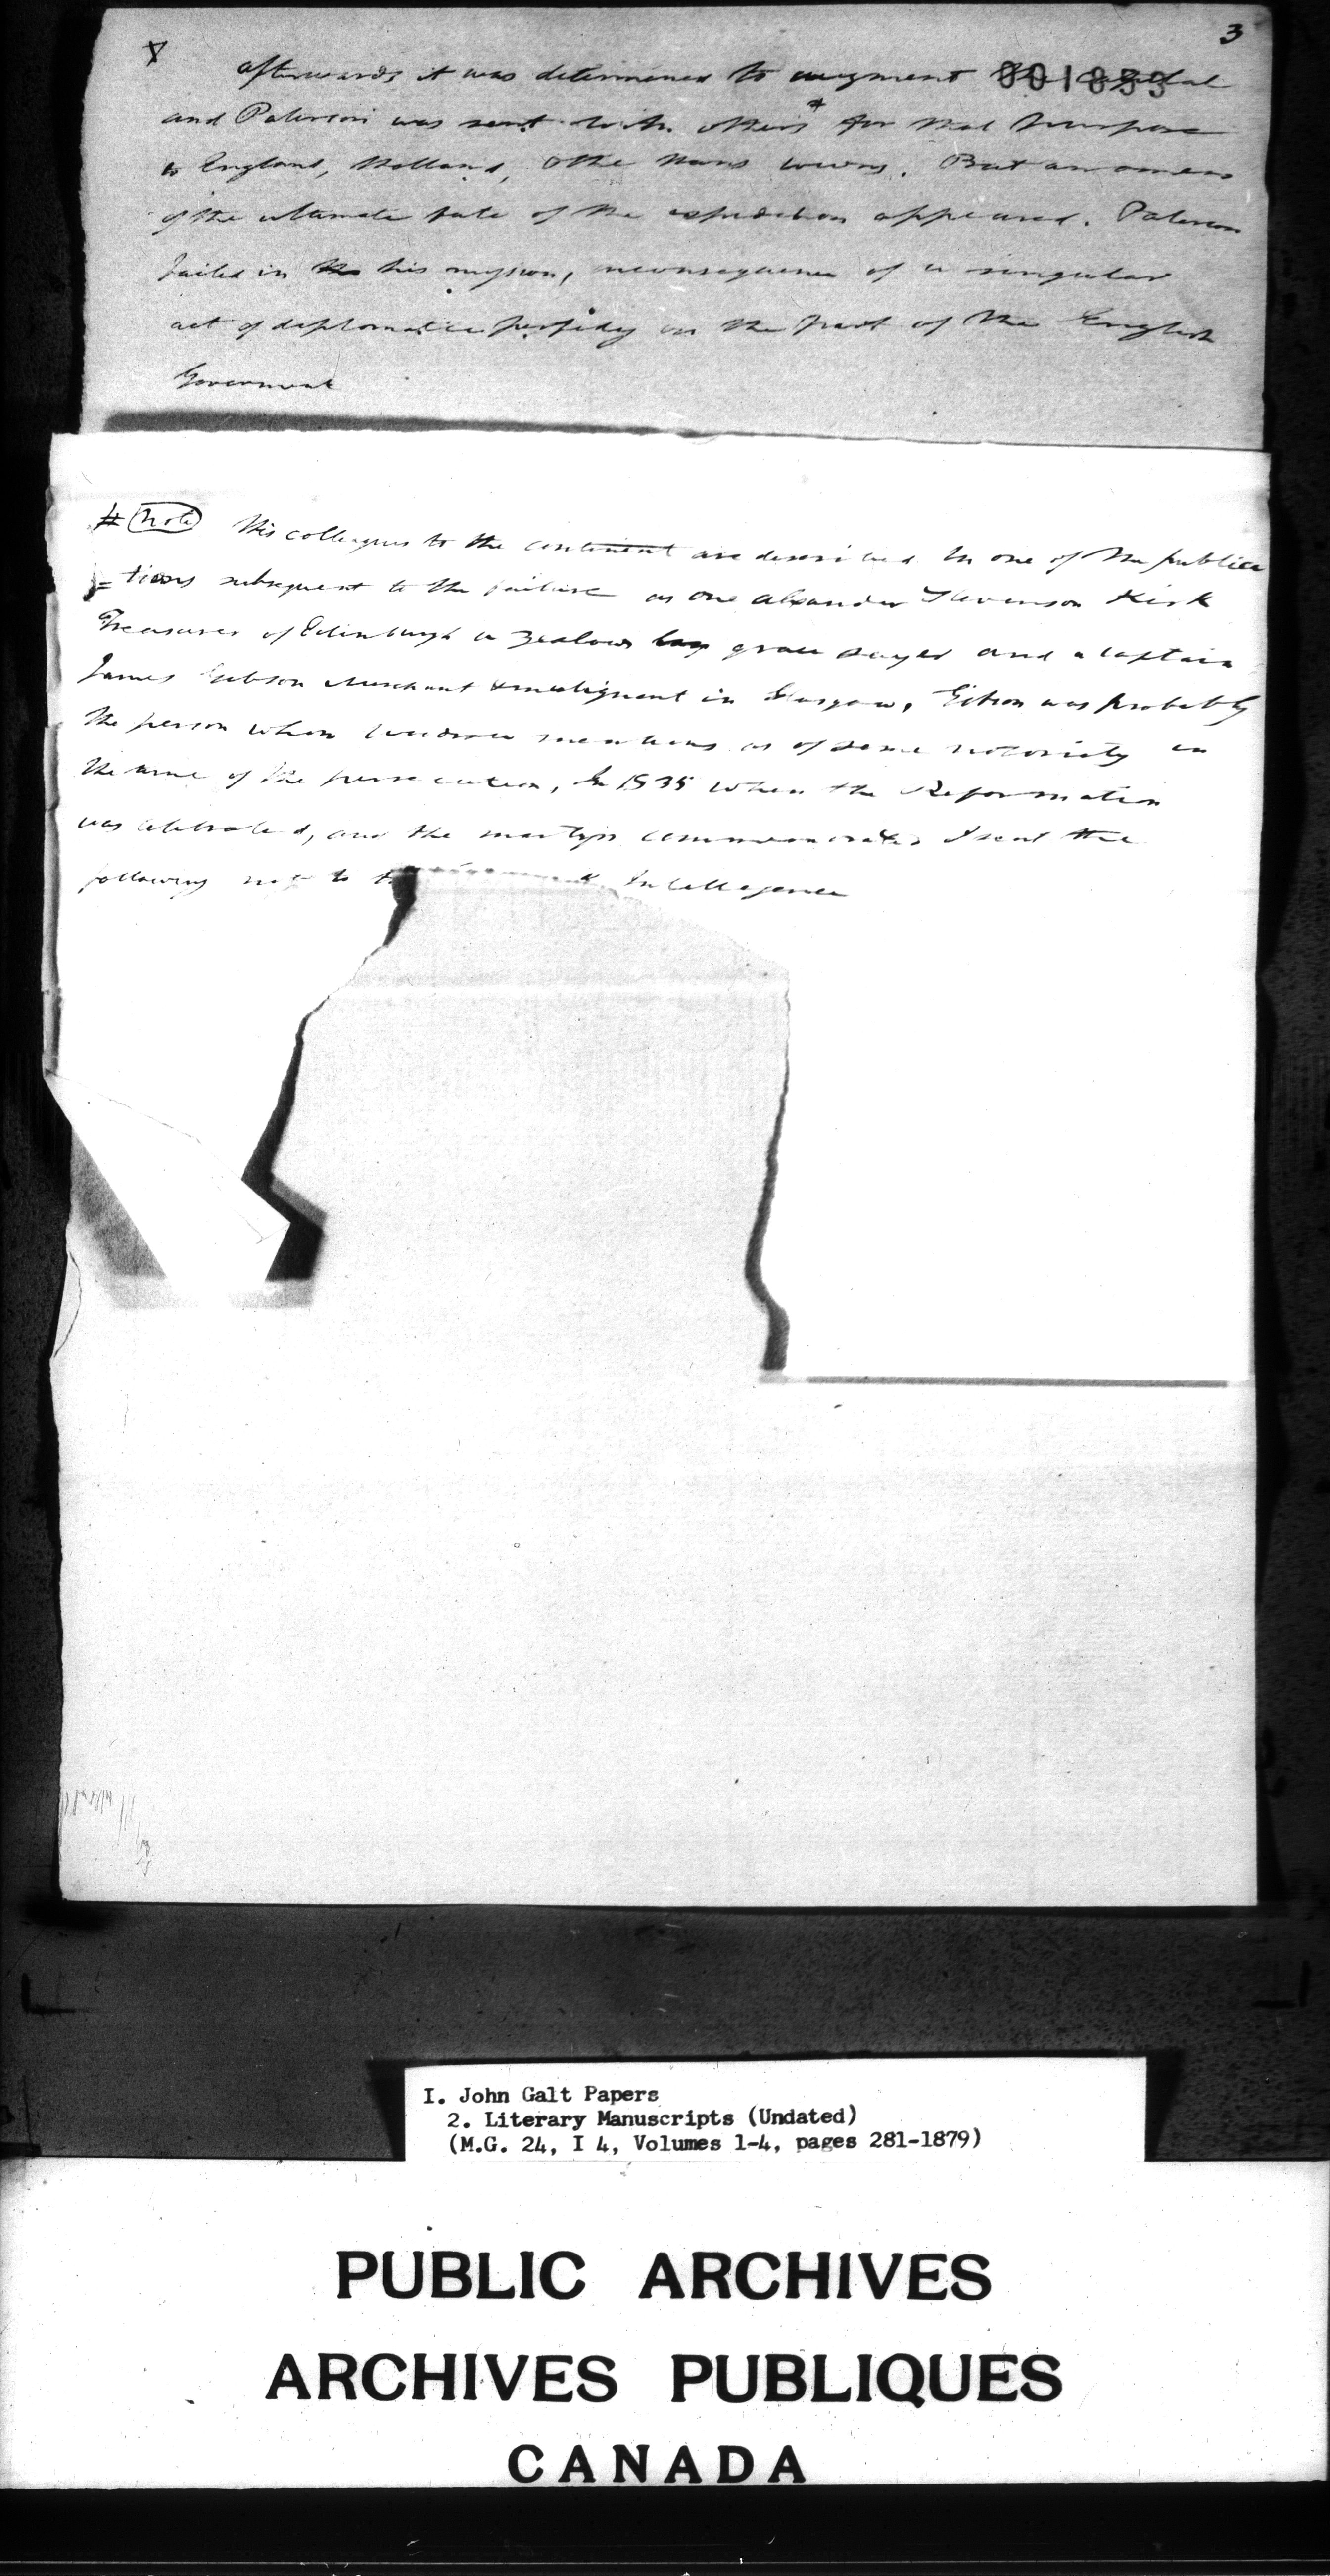 3
001853
afterwards it was determined to augment the capital
and Paterson was sent with others * for that purpose
to England, Holland, & the Hans towns. But an omen
of the ultimate fate of the expedition appeared. Paterson
failed in his mission, in consequence of a singular
act of diplomatic perfidy on the part of the English
Government
# Note His colleagues to the continent are described in one of the publica
=tions subsequent to the failure as one Alexander Stevenson Kirk
Treasurer of Edinburgh a zealous grace sayer and a Captain
James Gibson Merchant & malignant in Glasgow, Gibson was probably
the person whom mentions as of some notoriety in
the time of the persecution, In 1835 when the Reformation
was celebrated, and the martyrs commemorated I sent the
following not to Intelligence
I. John Galt Papers
2. Literary Manuscripts (Undated)
(M.G. 24, I 4, Volumes 1-4, pages 281-1879)
PUBLIC ARCHIVES
ARCHIVES PUBLIQUES
CANADA